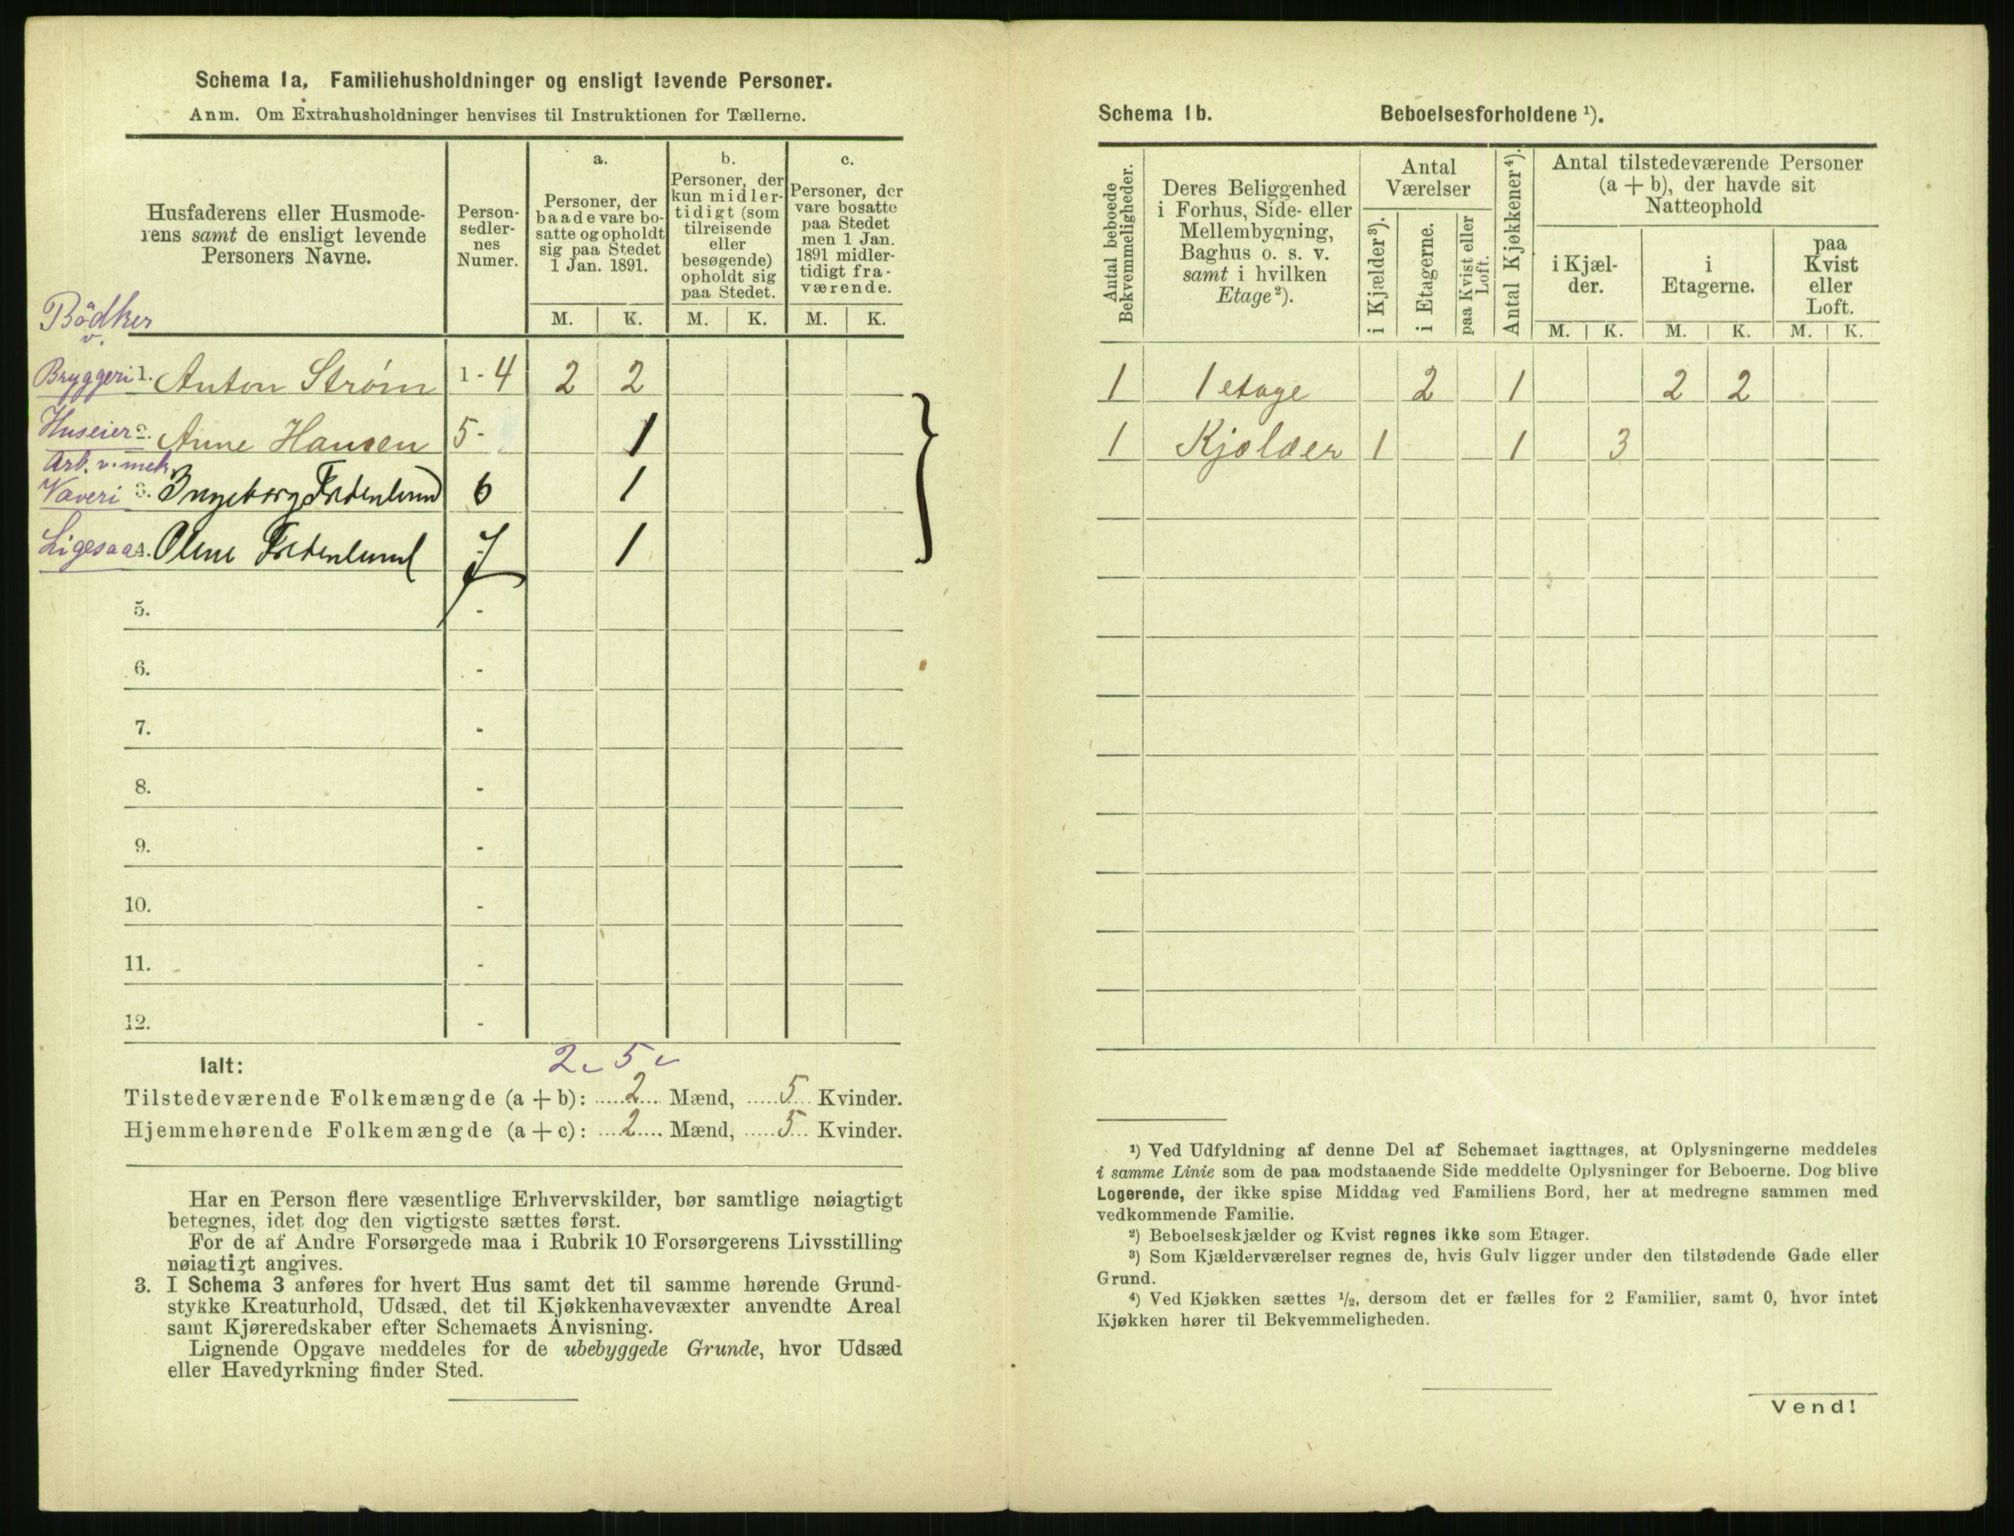 Schema 1a, Familiehusholdninger og ensligt levende Personer.
Anm. Om Extrahusholdninger henvises til Instruktionen for Tællerne.
Husfaderens eller Husmoderens samt de ensligt levende Personers Navne.
Personsedlernes Numer.
a.
Personer, der baade vare bosatte og opholdt sig paa Stedet 1 Jan. 1891.
b.
Personer, der kun midlertidigt (som tilreisende eller besøgende) opholdt sig paa Stedet.
c.
Personer, der vare bosatte paa Stedet men 1 Jan. 1891 midlertidigt fraværende.
M. K. M. K. M. K.
Bödker
v.
Bryggeri 1. Anton Strøm 1 - 4 2 2
Huseier 2. Anne Hansen 5 - 1
Arb. v. mek.
Væveri 3. Ingeborg Fredenlund 6 1
Ligesaa 4. Oline Fredenlund 7 1
5. -
6. -
7. -
8. -
9. -
10. -
11. -
12. -
Ialt: 2 5
Tilstedeværende Folkemængde (a + b): 2 Mænd, 5 Kvinder.
Hjemmehørende Folkemængde (a + c): 2 Mænd, 5 Kvinder.
Har en Person flere væsentlige Erhvervskilder, bør samtlige nøiagtigt
betegnes, idet dog den vigtigste sættes først.
For de af Andre Forsørgede maa i Rubrik 10 Forsørgerens Livsstilling
nøiagtigt angives.
3. I Schema 3 anføres for hvert Hus samt det til samme hørende Grund-
stykke Kreaturhold, Udsæd, det til Kjøkkenhavevæxter anvendte Areal
samt Kjøreredskaber efter Schemaets Anvisning.
Lignende Opgave meddeles for de ubebyggede Grunde, hvor Udsæd
eller Havedyrkning finder Sted.
Schema 1b. Beboelsesforholdene ¹).
Antal beboede Bekvemmeligheder.
Deres Beliggenhed i Forhus, Side- eller Mellembygning, Baghus o. s. v. samt i hvilken Etage ²).
Antal Værelser
i Kjælder ³).
i Etagerne.
paa Kvist eller Loft.
Antal Kjøkkener ⁴).
Antal tilstedeværende Personer (a + b), der havde sit Natteophold
i Kjælder.
i Etagerne.
paa Kvist eller Loft.
M. K. M. K. M. K.
1 1 etage 2 1 2 2
1 Kjælder 1 1 3
¹) Ved Udfyldning af denne Del af Schemaet iagttages, at Oplysningerne meddeles
i samme Linie som de paa modstaaende Side meddelte Oplysninger for Beboerne. Dog blive
Logerende, der ikke spise Middag ved Familiens Bord, her at medregne sammen med
vedkommende Familie.
²) Beboelseskjælder og Kvist regnes ikke som Etager.
³) Som Kjælderværelser regnes de, hvis Gulv ligger under den tilstødende Gade eller
Grund.
⁴) Ved Kjøkken sættes ½, dersom det er fælles for 2 Familier, samt 0, hvor intet
Kjøkken hører til Bekvemmeligheden.
Vend!